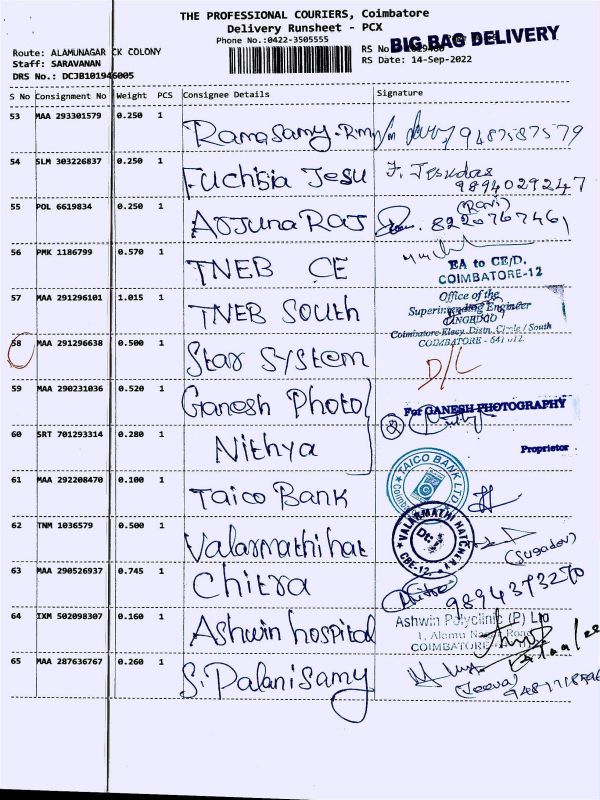 THE PROFESSIONAL COURIERS, Coimbatore
Delivery Runsheet - PCX
Phone No.:0422-3505555
BIG BAG DELIVERY
Route: ALAMUNAGAR CK COLONY
RS No
Staff: SARAVANAN
RS Date: 14-Sep-2022
DRS No.: DCJB101946005
S No Consignment No Weight PCS Consignee Details Signature
53 MAA 293301579 0.250 1 Ramasamy.Rm 9487587579
54 SLM 303226837 0.250 1 Fuchsia Jesu F. Jesudas
9894029247
55 POL 6619834 0.250 1 ArjunaRaj (Ravi)
8220767461
56 PMK 1186799 0.570 1 TNEB CE EA to CE/D.
COIMBATORE-12
57 MAA 291296101 1.015 1 TNEB South Office of the
Superintending Engineer
TANGEDCO
Coimbatore Elecy. Distn. Circle / South
COIMBATORE - 641 012.
58 MAA 291296638 0.500 1 Star System D/L
59 MAA 290231036 0.520 1 Ganesh Photo For GANESH PHOTOGRAPHY
60 SRT 701293314 0.280 1 Nithya Proprietor
61 MAA 292208470 0.100 1 Taico Bank TAICO BANK LTD.
62 TNM 1036579 0.500 1 Valarmathi hat VALARMATHI HATCHERY
Dt:
CBE-12.
63 MAA 290526937 0.745 1 Chitra Chitra
9894373270
64 IXM 502098307 0.160 1 Ashwin hospital Ashwin Polyclinic (P) Ltd
1, Alamu Nagar Road
COIMBATORE
65 MAA 287636767 0.260 1 S. Palanisamy (Jeeva)